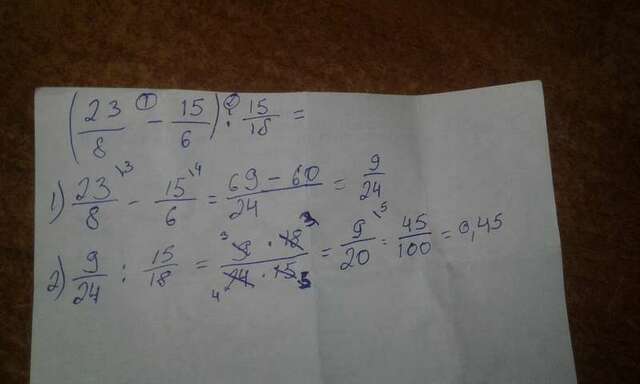 (23/8 ① − 15/6) ② : 15/18 =
1) 23/8 \3 − 15/6 \4 = 69 − 60/24 = 9/24
2) 9/24 : 15/18 = 3 9 · 18 3/4 24 · 15 5 = 9/20 \5 = 45/100 = 0,45